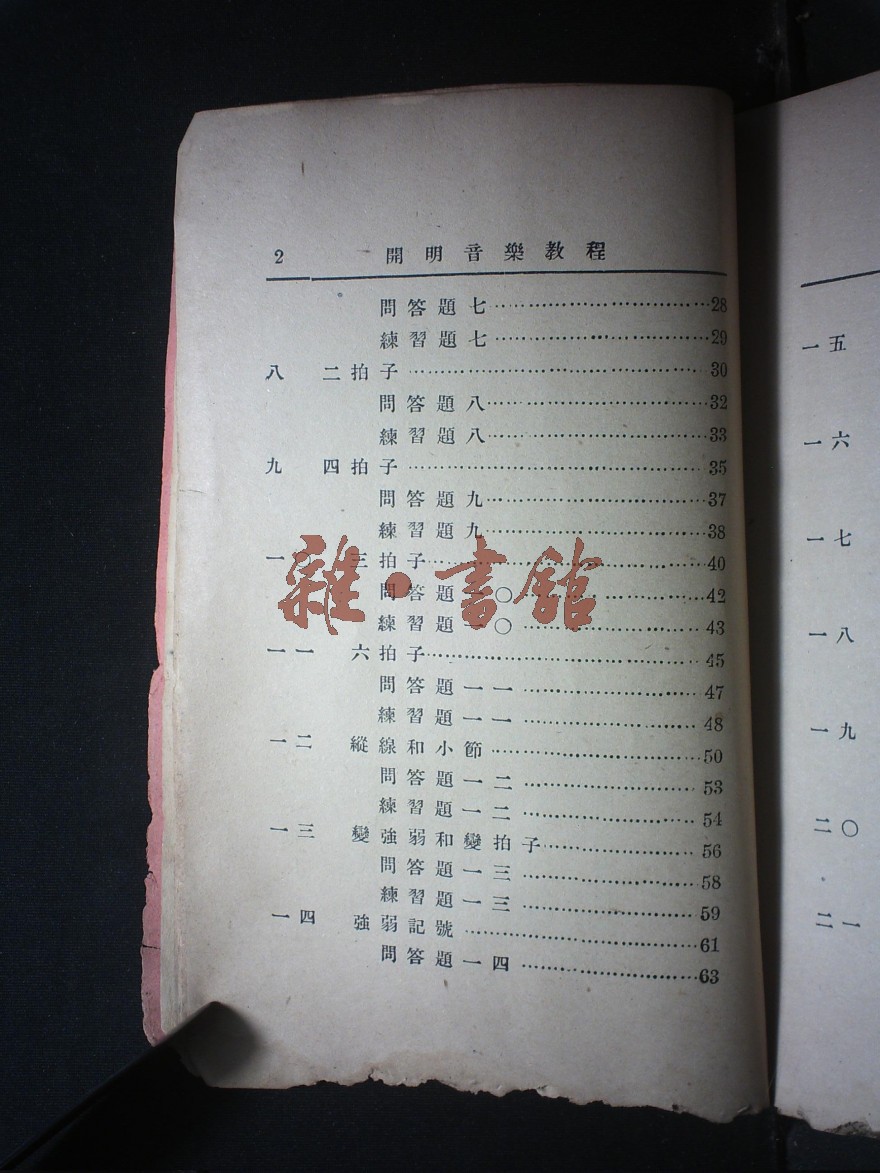 2 開明音樂教程
問答題七……28
練習題七……29
八 二拍子……30
問答題八……32
練習題八……33
九 四拍子……35
問答題九……37
練習題九……38
一〇 三拍子……40
問答題一〇……42
練習題一〇……43
一一 六拍子……45
問答題一一……47
練習題一一……48
一二 縱線和小節……50
問答題一二……53
練習題一二……54
一三 變強弱和變拍子……56
問答題一三……58
練習題一三……59
一四 強弱記號……61
問答題一四……63
雜·書館
一五
一六
一七
一八
一九
二〇
二一